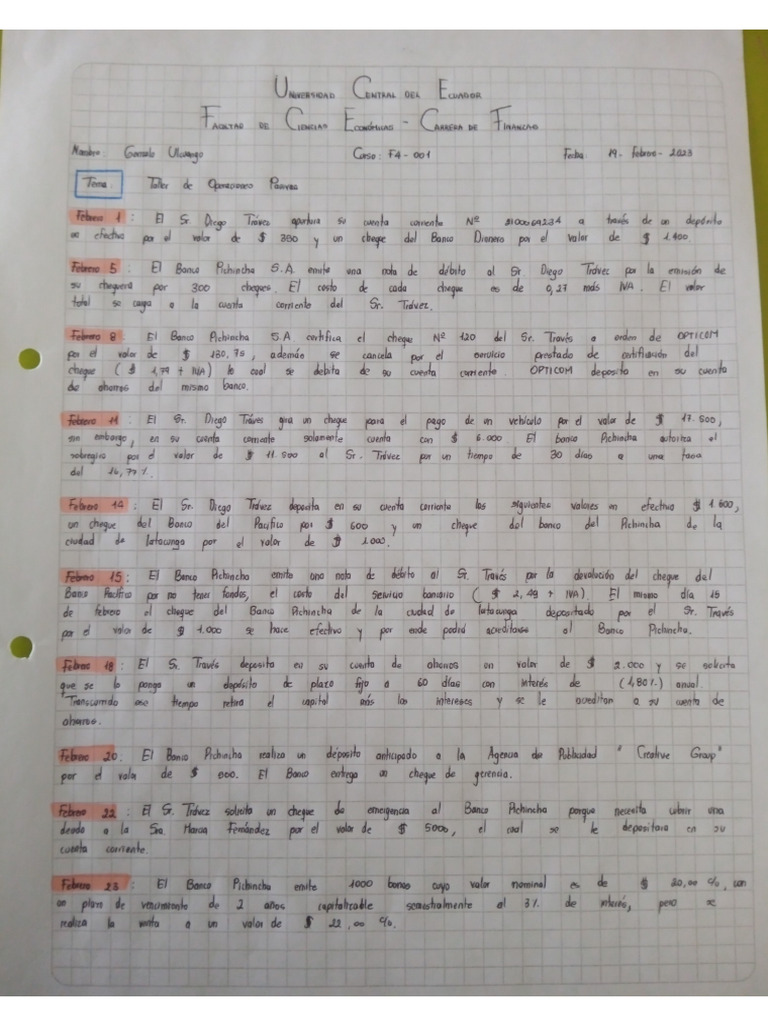 Universidad Central del Ecuador
Facultad de Ciencias Económicas - Carrera de Finanzas
Nombre: Gonzalo Curso: F4-001 Fecha: 19-Febrero-2023
Tema: Taller de Operaciones Pasivas
Febrero 1: El Sr. Diego Tráves apertura su cuenta corriente Nº a través de un depósito
en efectivo por el valor de $ 350 y un cheque del Banco por el valor de $ 1.400.
Febrero 5: El Banco Pichincha S.A. emite una nota de débito al Sr. Diego Trávez por la emisión de
su chequera por 300 cheques. El costo de cada cheque es de 0,27 más IVA. El valor
total se carga a la cuenta corriente del Sr. Trávez.
Febrero 8: El Banco Pichincha S.A certifica el cheque Nº 120 del Sr. Través a orden de OPTICOM
por el valor de $ 130,75, además se cancela por el servicio prestado de certificación del
cheque ($ 1,79 + IVA) lo cual se debita de su cuenta corriente. OPTICOM deposita en su cuenta
de ahorros del mismo banco.
Febrero 11: El Sr. Diego Tráves gira un cheque para el pago de un vehículo por el valor de $ 17.500,
sin embargo, en su cuenta corriente solamente cuenta con $ 6.000. El banco Pichincha autoriza el
sobregiro por el valor de $ 11.500 al Sr. Trávez por un tiempo de 30 días a una tasa
del 16,77%.
Febrero 14: El Sr. Diego Trávez deposita en su cuenta corriente los siguientes valores en efectivo $ 1.500,
un cheque del Banco del Pacífico por $ 600 y un cheque del banco del Pichincha de la
ciudad de Latacunga por el valor de $ 1000.
Febrero 15: El Banco Pichincha emite una nota de débito al Sr. Través por la devolución del cheque del
Banco Pacífico por no tener fondos, el costo del servicio bancario ($ 2,49 + IVA). El mismo día 15
de febrero el cheque del Banco Pichincha de la ciudad de Latacunga depositado por el Sr. Través
por el valor de $ 1.000 se hace efectivo y por ende podrá acreditarse al Banco Pichincha.
Febrero 18: El Sr. Través deposita en su cuenta de ahorros un valor de $ 2.000 y se solicita
que se lo ponga un depósito de plazo fijo a 60 días con interés de (1,80%) anual.
Transcurrido ese tiempo retira el capital más los intereses y se le acreditan a su cuenta de
ahorros.
Febrero 20. El Banco Pichincha realiza un depósito anticipado a la Agencia de Publicidad "Creative Group"
por el valor de $ El Banco entrega un cheque de gerencia.
Febrero 22: El Sr. Trávez solicita un cheque de emergencia al Banco Pichincha porque necesita cubrir una
deuda a la Sra. Fernández por el valor de $ 5000, el cual se le depositara en su
cuenta corriente.
Febrero 23: El Banco Pichincha emite 1000 bonos cuyo valor nominal es de $ 20,00 c/u, con
un plazo de vencimiento de 2 años capitalizable semestralmente al 3% de interés, pero se
realiza la venta a un valor de $ 22,00 c/u.